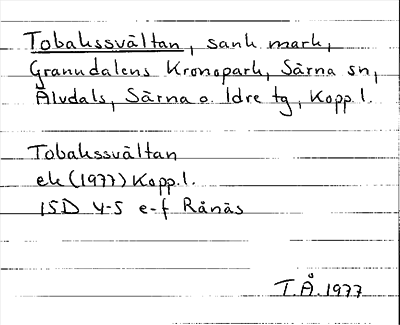 Tobakssvältan, sank mark,
Granndalens Kronopark, Särna sn,
Älvdals, Särna o. Idre tg, Kopp. l.
Tobakssvältan
ek (1977) Kopp. l.
15D 4-5 e-f Rånäs
T.Å. 1977